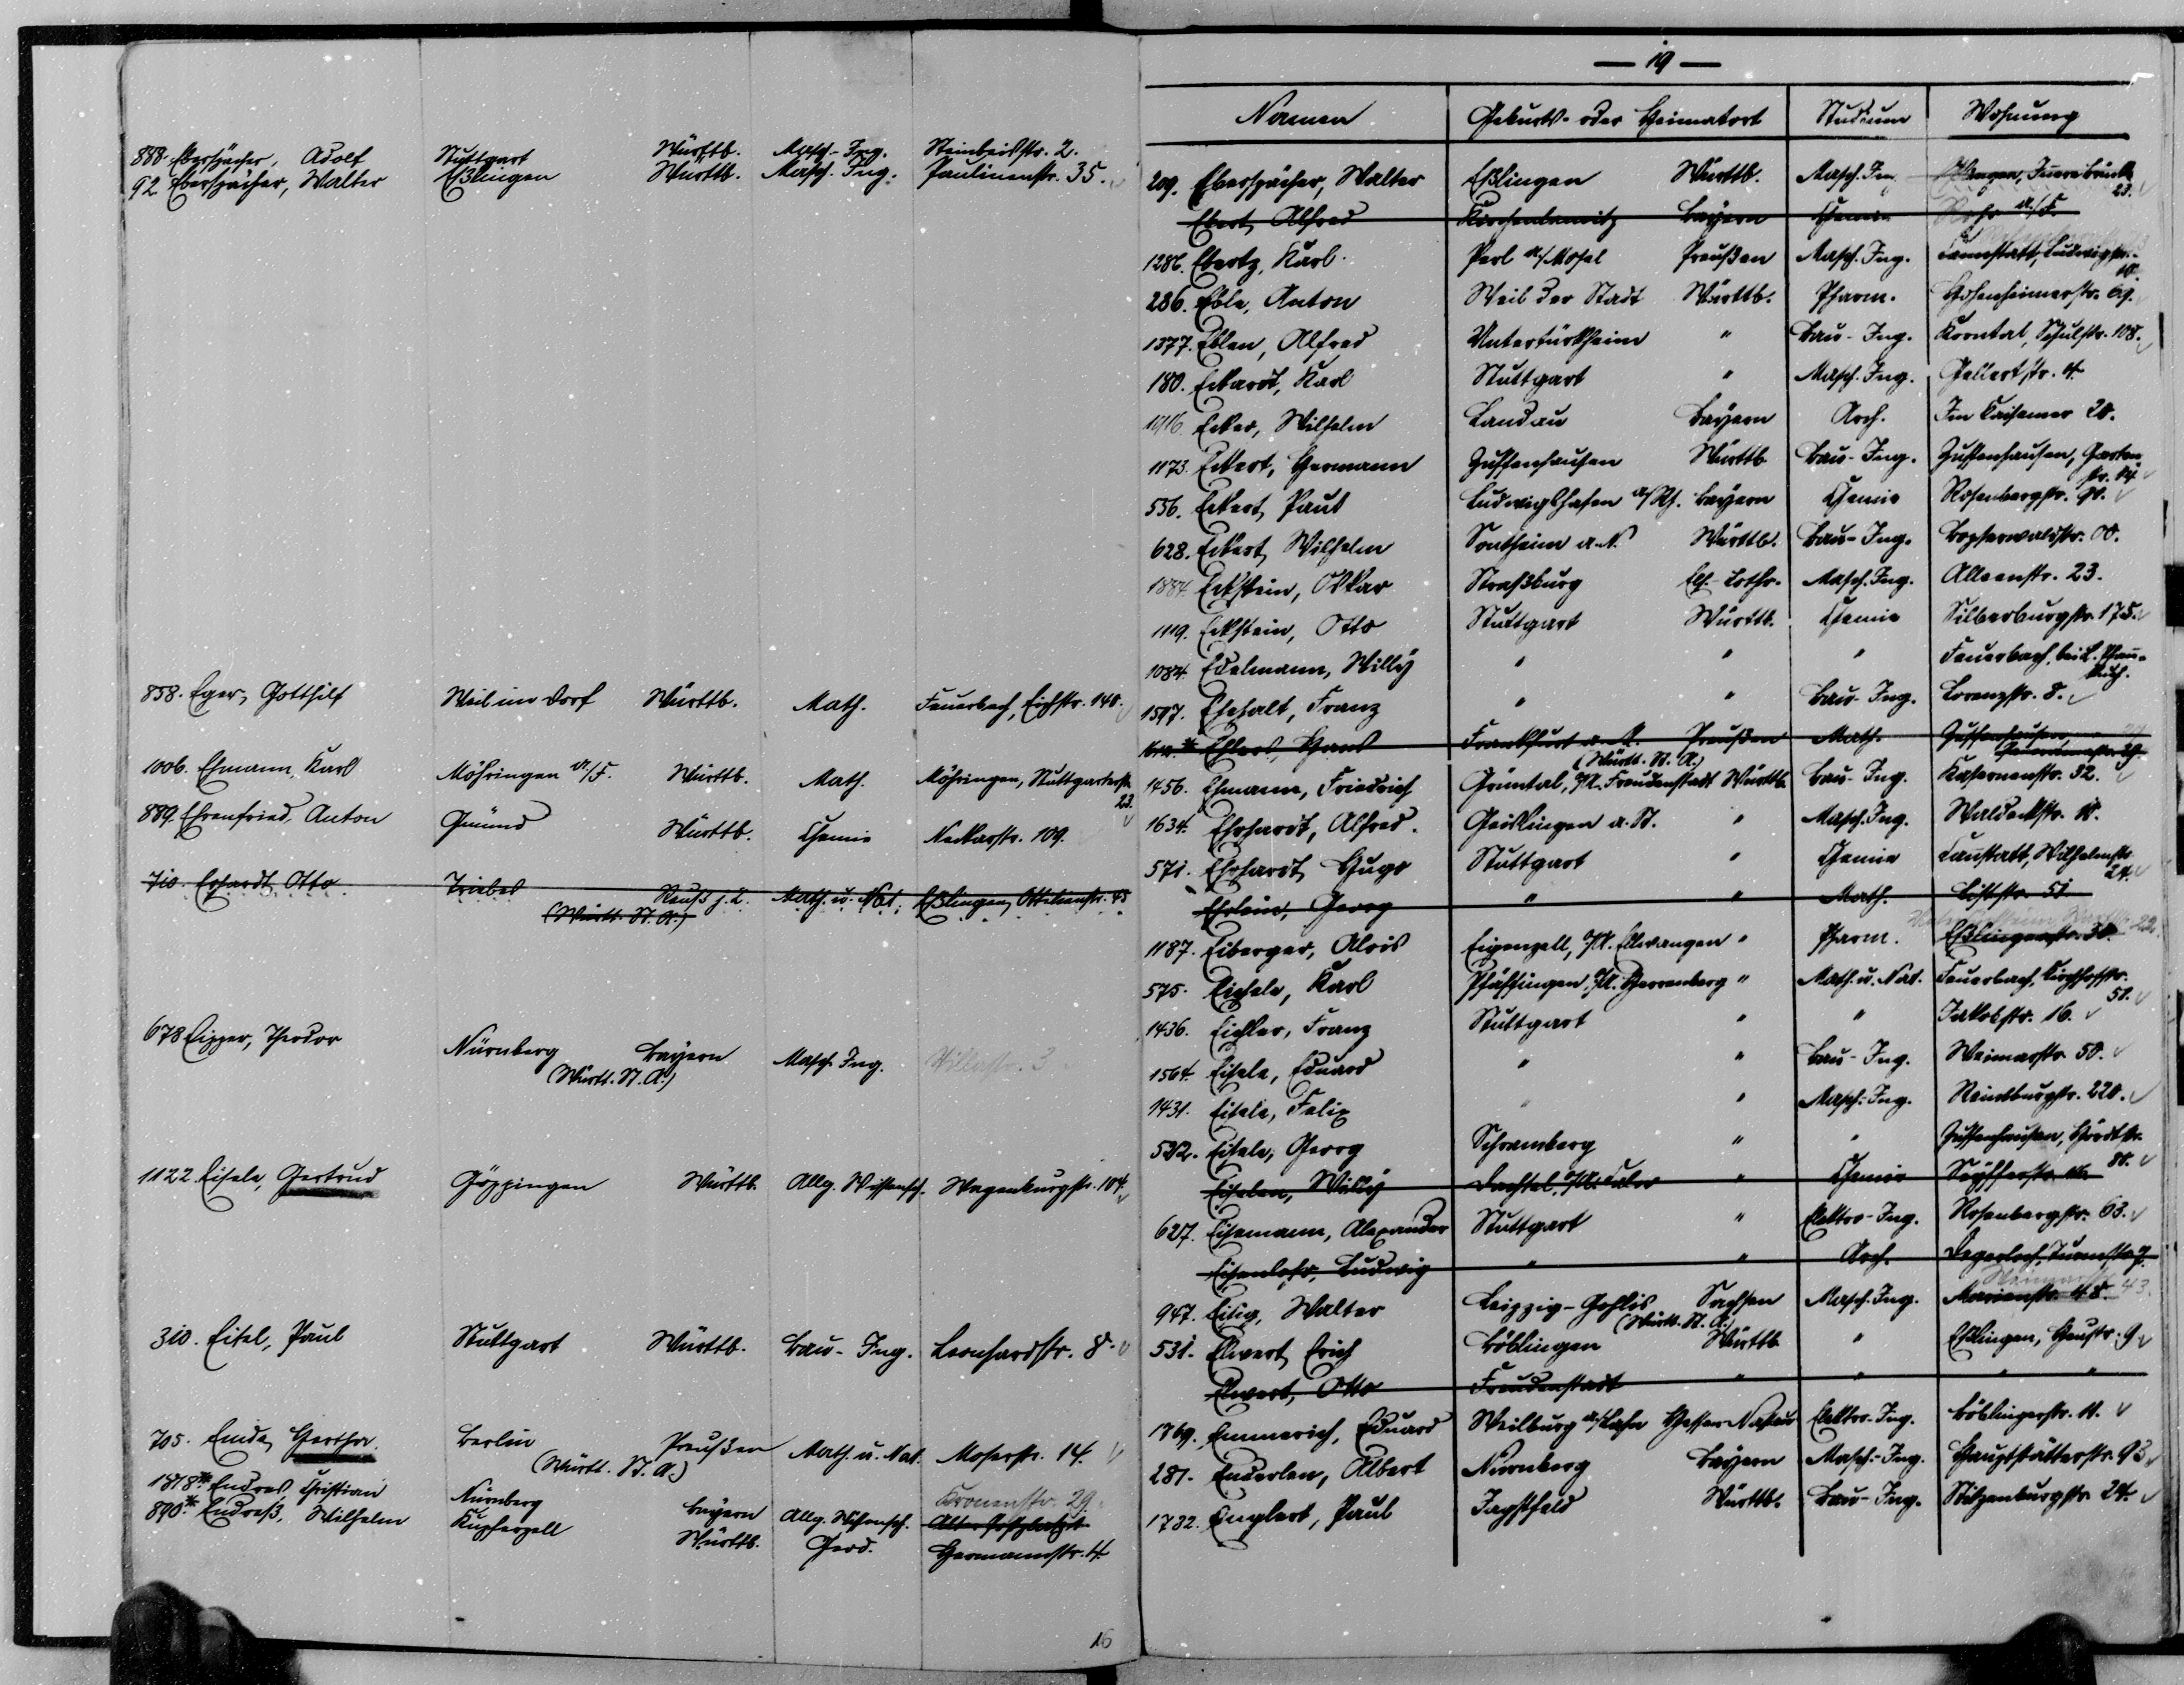 888. Eberspächer, Adolf Stuttgart Württb. Masch.-Ing. Steinbeisstr. 2.
92. Eberspächer, Walter Eßlingen Württb. Masch. Ing. Paulinenstr. 35.
858. Eger, Gotthilf Weil im Dorf Württb. Math. Feuerbach, Eichstr. 140.
1006. Ehmann, Karl Möhringen a/F. Württb. Math. Möhringen, Stuttgarterstr.
23.
889. Ehrenfried, Anton Gmünd Württb. Chemie Neckarstr. 109.
710. Erhardt, Otto Triebes Reuß j. L. Math. u. Nat. Eßlingen, Ottilienstr. 43
(Württ. St. A.)
678 Eipper, Theodor Nürnberg Bayern Masch. Ing. Villastr. 3
(Württ. St. A.)
1122. Eisele, Gertrud Göppingen Württb. Allg. Wissensch. Wagenburgstr. 104.
310. Eitel, Paul Stuttgart Württb. Bau-Ing. Leonhardstr. 8.
705. Ende, Hertha Berlin Preußen Math. u. Nat. Moserstr. 14.
(Württ. St. A.)
Kronenstr. 29.
1818* Endres, Christian Nürnberg Bayern Allg. Wissensch. Alter Postplatz 1
890.* Endreß, Wilhelm Kupferzell Württb. Geod. Hermannstr. 4.
16
— 19 —
Namen Geburts- oder Heimatort Studium Wohnung
209. Eberspächer, Walter Eßlingen Württb. Masch. Ing. Eßlingen, Innere Brücke
23.
Ebert, Alfred Kirchenlamitz Bayern Chemie Rohr a/F.
1286. Ebertz, Karl Perl a/Mosel Preußen Masch. Ing. Cannstatt, Ludwigstr.
10.
286. Eble, Anton Weil der Stadt Württb. Pharm. Hohenheimerstr. 69.
1377. Eblen, Alfred Untertürkheim " Bau-Ing. Korntal, Schulstr. 108.
180. Eckardt, Karl Stuttgart " Masch. Ing. Gellertstr. 4.
1116. Ecker, Wilhelm Landau Bayern Arch. Im Kaisemer 20.
1173. Eckert, Hermann Zuffenhausen Württb. Bau-Ing. Zuffenhausen, Garten
str. 14
556. Eckert, Paul Ludwigshafen a/Rh. Bayern Chemie Rosenbergstr. 90.
628. Eckert, Wilhelm Sontheim a. N. Württb. Bau-Ing. Bopserwaldstr. 00.
1884. Eckstein, Oskar Straßburg Els.-Lothr. Masch. Ing. Alleenstr. 23.
1119. Eckstein, Otto Stuttgart Württb. Chemie Silberburgstr. 175.
1084. Edelmann, Willy " " " Feuerbach, bei L. Pfau-
1597. Ehehalt, Franz " " Bau-Ing. Lorenzstr. 8.
Ehlers, Hans Frankfurt a. M. Preußen Math. Zuffenhausen
(Württ. St. A.)
1456. Ehmann, Friedrich Grüntal, O/A. Freudenstadt Württb. Bau-Ing. Kasernenstr. 32.
1634. Ehrhardt, Alfred. Geislingen a. St. " Masch. Ing. Waldeckstr. 11.
571. Ehrhardt, Hugo Stuttgart " Chemie Cannstatt, Wilhelmstr.
24.
Ehrlein, Georg " " Math. Lichtstr. 51
1187. Eiberger, Alois Eigenzell, O/A. Ellwangen " Pharm. Eßlingerstr. 30. 22.
575. Eichele, Karl Pfäffingen, O/A. Herrenberg " Math. u. Nat. Feuerbach, Kirchhofstr.
50.
1436. Eichler, Franz Stuttgart " " Jakobstr. 16.
1564. Eisele, Eduard " " Bau-Ing. Weimarstr. 50.
1431. Eisele, Felix " " Masch.-Ing. Reinsburgstr. 220.
522. Eisele, Georg Schramberg " " Zuffenhausen, Hördtstr.
80.
Eiselen, Willy Dachtel, O/A. Calw " Chemie Seyfferstr.
627. Eisemann, Alexander Stuttgart " Elektro-Ing. Rosenbergstr. 63.
Eisenlohr, Ludwig " " Arch. Degerloch, Turmstr. 7
Weimarstr. 43.
947. Eitig, Walter Leipzig-Gohlis Sachsen Masch. Ing. Marienstr. 48.
(Württ. St. A.)
531. Elwert, Erich Böblingen Württb. " Eßlingen, Heustr. 9
Elwert, Otto Freudenstadt " " " "
1769. Emmerich, Eduard Weilburg a/Lahn Hessen-Nassau Elektro-Ing. Böblingerstr. 11.
281. Enderlen, Albert Nürnberg Bayern Masch.-Ing. Hauptstätterstr. 93
1732. Englert, Paul Jagstfeld Württb. Bau-Ing. Stitzenburgstr. 24.